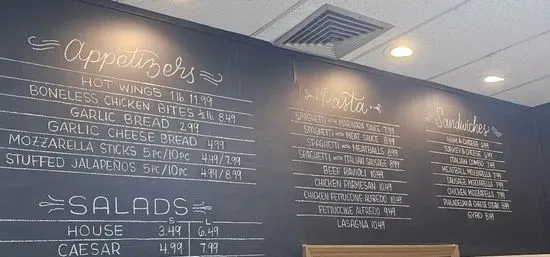 Appetizers
HOT WINGS 1 lb 11.99
BONELESS CHICKEN BITES ½ lb 8.49
GARLIC BREAD 2.99
GARLIC CHEESE BREAD 4.49
MOZZARELLA STICKS 5pc/10pc 4.49/7.99
STUFFED JALAPEÑOS 5pc/10pc 4.49/8.99
SALADS
S L
HOUSE 3.49 6.49
CAESAR 4.99 7.99
Pasta
SPAGHETTI with MARINARA SAUCE 7.99
SPAGHETTI with MEAT SAUCE 8.99
SPAGHETTI with MEATBALLS 8.99
SPAGHETTI with ITALIAN SAUSAGE 8.99
BEEF RAVIOLI 10.49
CHICKEN PARMESAN 10.49
CHICKEN FETTUCCINE ALFREDO 10.49
FETTUCCINE ALFREDO 9.49
LASAGNA 10.49
Sandwiches
HAM & CHEESE
TURKEY & CHEESE
ITALIAN COMBO
MEATBALL MOZZARELLA
SAUSAGE MOZZARELLA
CHICKEN MOZZARELLA
PHILADELPHIA CHEESE STEAK 8.99
GYRO 8.49